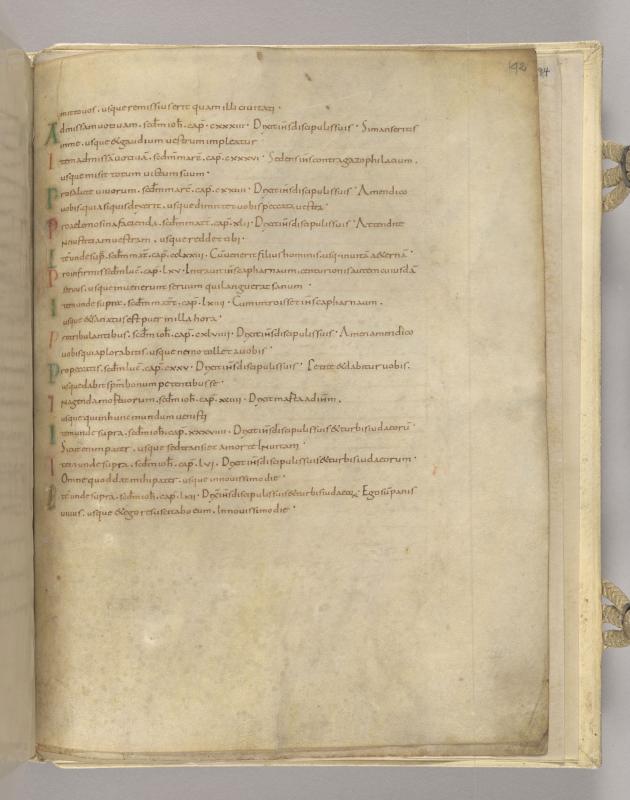 192 94
mittovos. usque remissius erit quam illi civitati.
Admissam votivam. secdm ioh. cap. cxxxiii. Dixit ihs discipulis suis. Si manseritis
inme. usque & gaudium vestrum impleatur
Item ad missā votivā. secdm marc. cap. cxxxvi. Sedens ihs contra gazophilacium.
usque misit totum victum suum.
Pro salute vivorum. secdm marc. cap. Dixit ihs discipulis suis. Amen dico
vobis quia siquis dixerit. usque dimittet vobis peccata vestra.
Pro aelemosina facienda. secdm matt. cap. xlii. Dixit ihs discipulis suis. Attendite
Ne iustitiam vestram. usque reddet tibi.
Itē unde supr. secdm matt. cap. cclxxiii. Cū venerit filius hominis. usq; invitā aeternā.
Pro infirmis secdm luc. cap. lxv. Intravit ihs capharnaum. centurionis autem cuiusdā
servus. usque invenerunt servum qui languerat sanum.
Item unde supre. secdm matt. cap. lxiiii. Cum introisset ihs capharnaum.
usque & sanatus est puer in illa hora.
Pro tribulantibus. secdm ioh. cap. cxlviiii. Dixit ihs discipulis suis. Amen amen dico
vobis quia plorabitis. usque nemo tollet a vobis.
Pro peccatis. secdm luc. cap. cxxv. Dixit ihs discipulis suis. Petite & dabitur vobis.
usque dabit spm bonum petentibus se.
In agenda mortuorum. secdm ioh. cap. xciiii. Dixit martha ad ihm.
usque qui inhunc mundum venisti
Item unde supra. secdm ioh. cap. xxxviiii. Dixit ihs discipulis suis & turbis iudaeorū.
Sicut enim pater. usque sed transiet a morte In vitam.
Item unde supra. secdm ioh. cap. lvi. Dixit ihs discipulis suis & turbis iudaeorum.
Omne quod dat mihi pater. usque innovissimo die.
Itē unde supra. secdm ioh. cap. lxii. Dixit ihs discipulis suis & turbis iudaeor. Ego sū panis
vivus. usque & ego resuscitabo eum. In novissimo die.